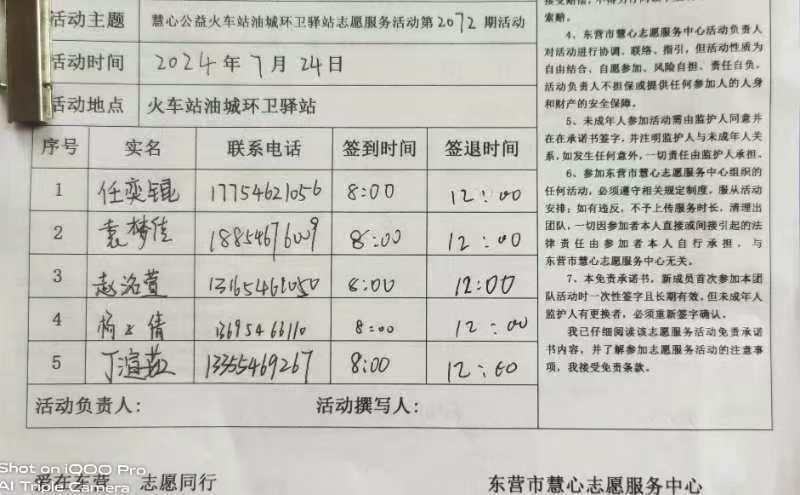 活动主题 慧心公益火车站油城环卫驿站志愿服务活动第2072期活动
活动时间 2024年7月24日
活动地点 火车站油城环卫驿站
序号 实名 联系电话 签到时间 签退时间
1 任奕锟 17754621056 8:00 12:00
2 袁梦佳 18854676009 8:00 12:00
3 赵洺萱 13165461050 8:00 12:00
4 倩 13695463110 8:00 12:00
5 丁渲茹 13355469267 8:00 12:00
活动负责人: 活动撰写人:
爱在东营 志愿同行
东营市慧心志愿服务中心
索赔。
4、东营市慧心志愿服务中心活动负责人
对活动进行协调、联络、指引,但活动性质为
自由结合,自愿参加、风险自担、责任自负。
活动负责人不担保或提供任何参加人的人身
和财产的安全保障。
5、未成年人参加活动需由监护人同意并
在在承诺书签字,并注明监护人与未成年人关
系,如发生任何意外,一切责任由监护人承担。
6、参加东营市慧心志愿服务中心组织的
任何活动,必须遵守相关规定制度,服从活动
安排;如有违反,不予上传服务时长,清理出
团队,一切因参加者本人直接或间接引起的法
律责任由参加者本人自行承担,与
东营市慧心志愿服务中心无关。
7、本免责承诺书,新成员首次参加本团
队活动时一次性签字且长期有效,但未成年人
监护人有更换者,必须重新签字确认。
我已仔细阅读该志愿服务活动免责承诺
书内容,并了解参加志愿服务活动的注意事
项,我接受免责条款。
Shot on iQOO Pro
AI Triple Camera